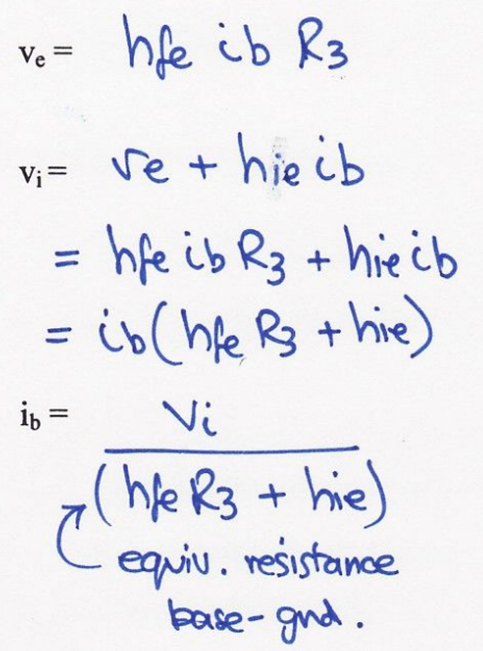 ve = hfe ib R3
vi = ve + hie ib
= hfe ib R3 + hie ib
= ib(hfe R3 + hie)
ib = Vi
(hfe R3 + hie)
equiv. resistance
base-gnd.